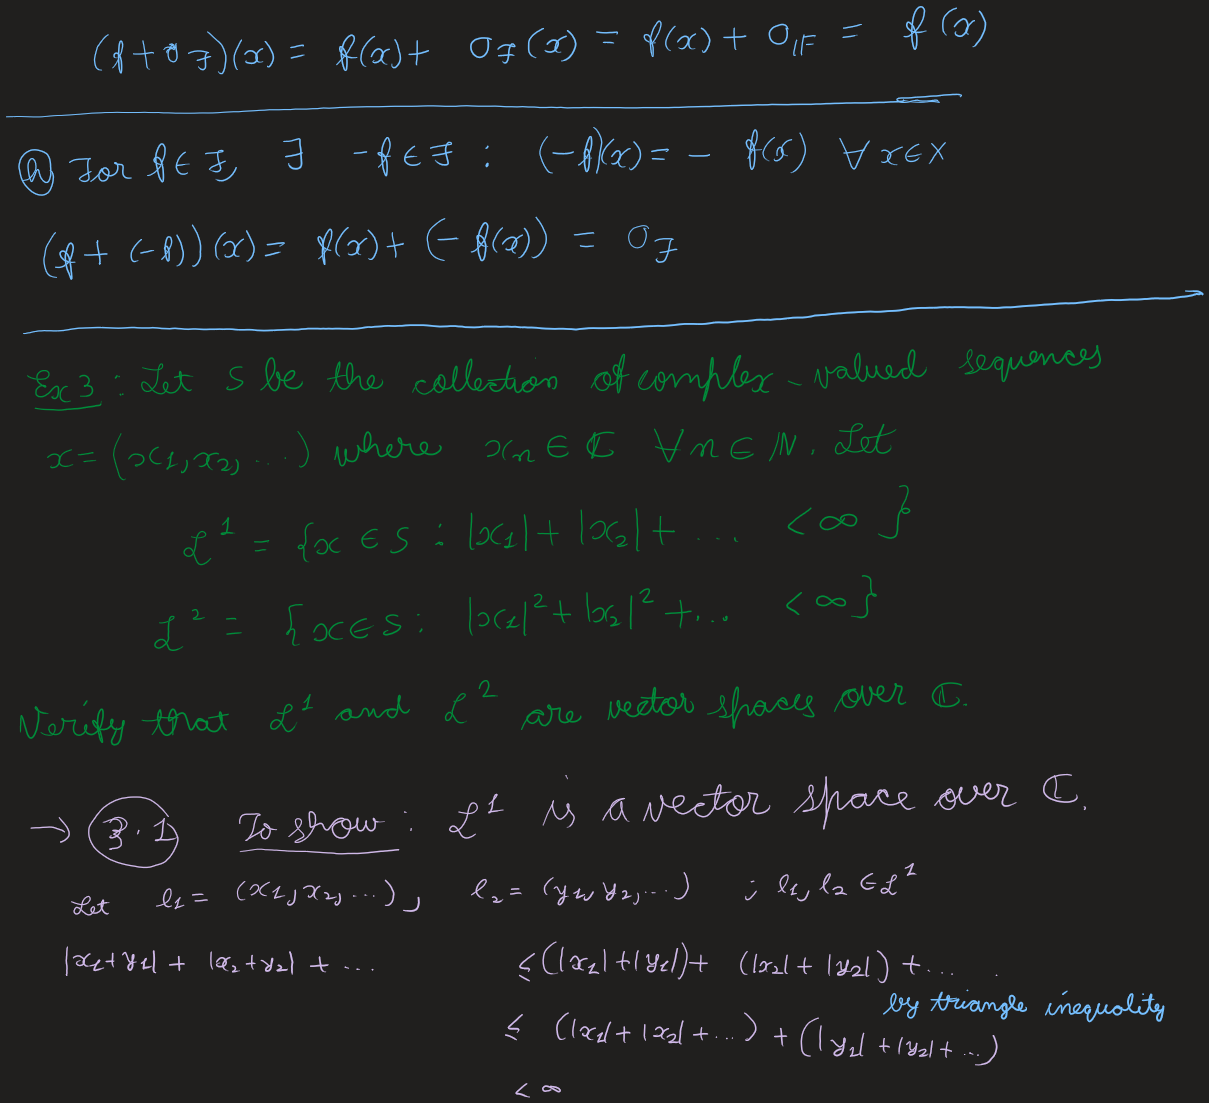 (f + 0_ℱ)(x) = f(x) + 0_ℱ(x) = f(x) + 0_𝔽 = f(x)
ⓗ For f ∈ ℱ, ∃ -f ∈ ℱ : (-f)(x) = - f(x) ∀ x ∈ X
(f + (-f))(x) = f(x) + (- f(x)) = 0_ℱ
Ex 3 : Let S be the collection of complex-valued sequences
x = (x₁, x₂, ...) where xₙ ∈ ℂ ∀ n ∈ ℕ. Let
ℒ¹ = {x ∈ S : |x₁| + |x₂| + ... < ∞ }
ℒ² = {x ∈ S : |x₁|² + |x₂|² + ... < ∞ }
Verify that ℒ¹ and ℒ² are vector spaces over ℂ.
→ 3.1 To show : ℒ¹ is a vector space over ℂ.
Let l₁ = (x₁, x₂, ...), l₂ = (y₁, y₂, ...) ; l₁, l₂ ∈ ℒ¹
|x₁+y₁| + |x₂+y₂| + ... ≤ (|x₁| + |y₁|) + (|x₂| + |y₂|) + ...
by triangle inequality
≤ (|x₁| + |x₂| + ...) + (|y₁| + |y₂| + ...)
< ∞